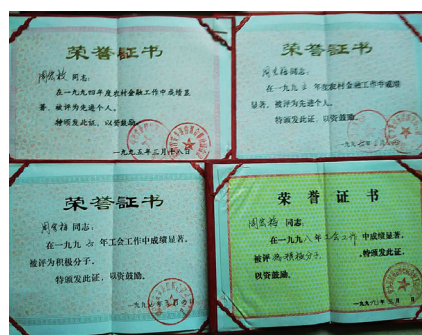 荣誉证书
同志:
在一九九四年度农村金融工作中成绩显
著、被评为先进个人。
特颁发此证、以资鼓励。
一九九五年三月十八日
荣誉证书
同志:
在一九九 年度农村金融工作中成绩
显著、被评为先进个人。
特颁发此证、以资鼓励。
荣誉证书
同志:
在一九九 年工会工作中成绩显著、
被评为积极分子。
特颁发此证、以资鼓励。
荣誉证书
周宏梅 同志:
在一九九八年工会工作中成绩显著,
被评为积极分子 .特颁发此证,
以资鼓励。